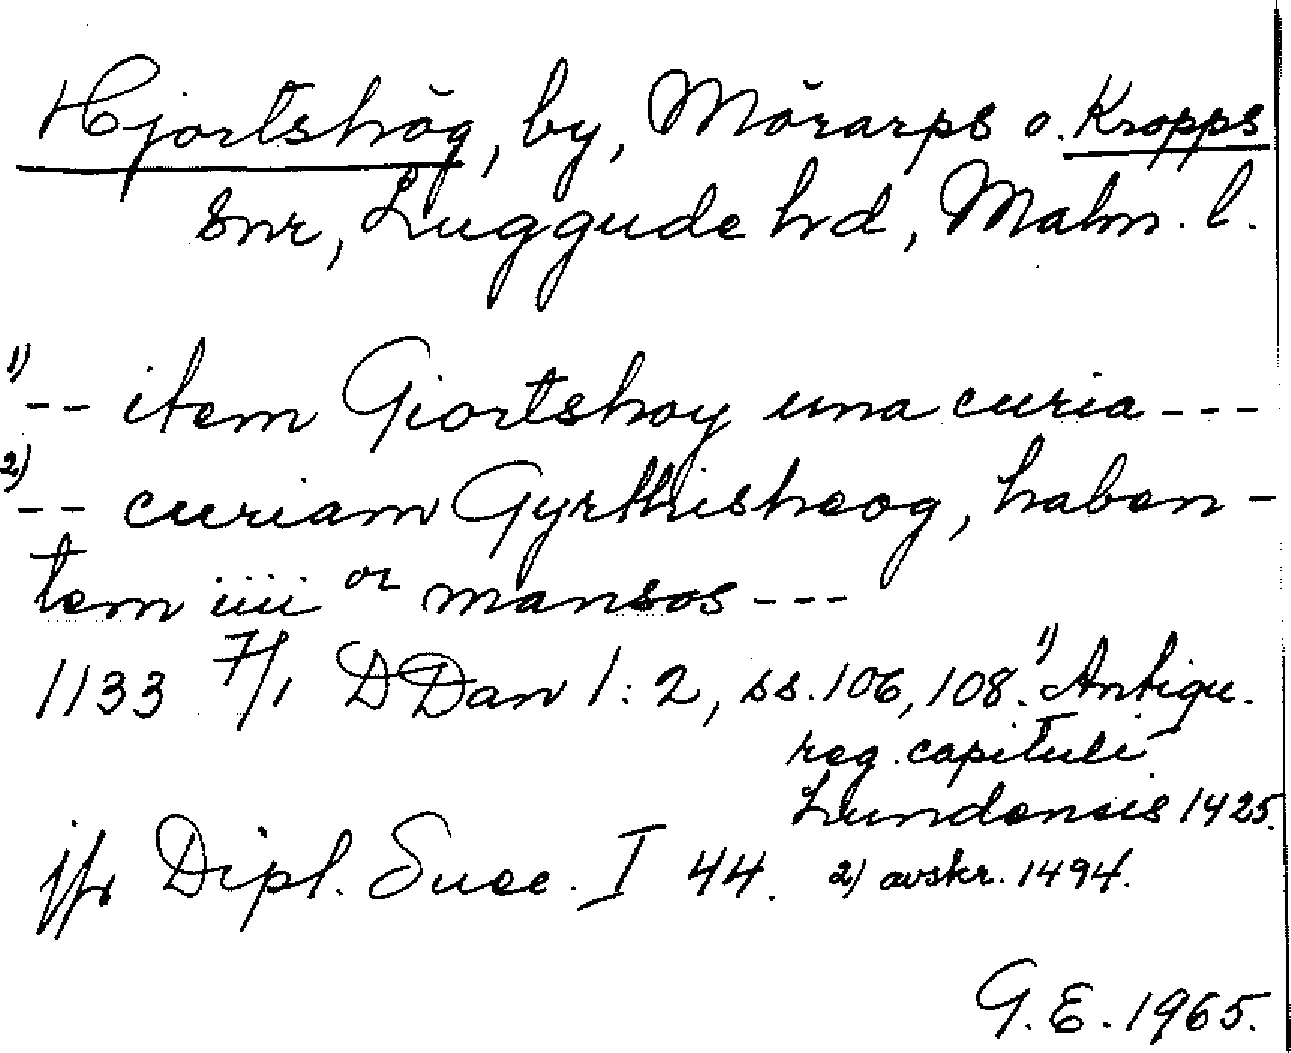 Hjortshög, by, Mörarps o. Kropps
snr, Luggude hd, Malm. l.
1) -- item Giortshoy una curia ---
2) -- curiam Gyrthisheog, haben-
tem iiii or mansos ---
1133 7/1 DDan 1:2, ss. 106, 108. 1) Antiqu.
reg. capituli
Lundensis 1425.
jfr Dipl. Suec. I 44. 2) avskr. 1494.
G. E. 1965.